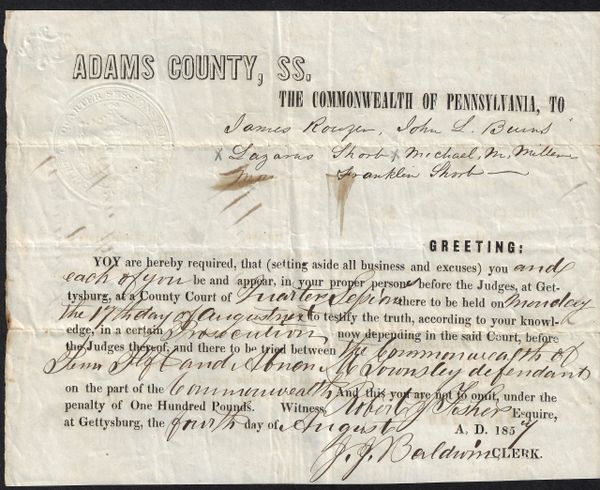 ADAMS COUNTY, SS.
THE COMMONWEALTH OF PENNSYLVANIA, TO
James Rouzer, John L. Burns
x Lazarus Shorb x Michael M. Miller
Franklin Shorb
GREETING:
YOY are hereby required, that (setting aside all business and excuses) you and
each of you be and appear, in your proper persons before the Judges, at Get-
tysburg, at a County Court of Quarter Sessions there to be held on Monday
the 17th day of August next to testify the truth, according to your knowl-
edge, in a certain Prosecution now depending in the said Court, before
the Judges thereof, and there to be tried between the Commonwealth of
Penn and Townsley defendant
on the part of the Commonwealth And this you are not to omit, under the
penalty of One Hundred Pounds. Witness, Robert J. Fisher Esquire,
at Gettysburg, the fourth day of August A. D. 1857
J. J. Baldwin CLERK.